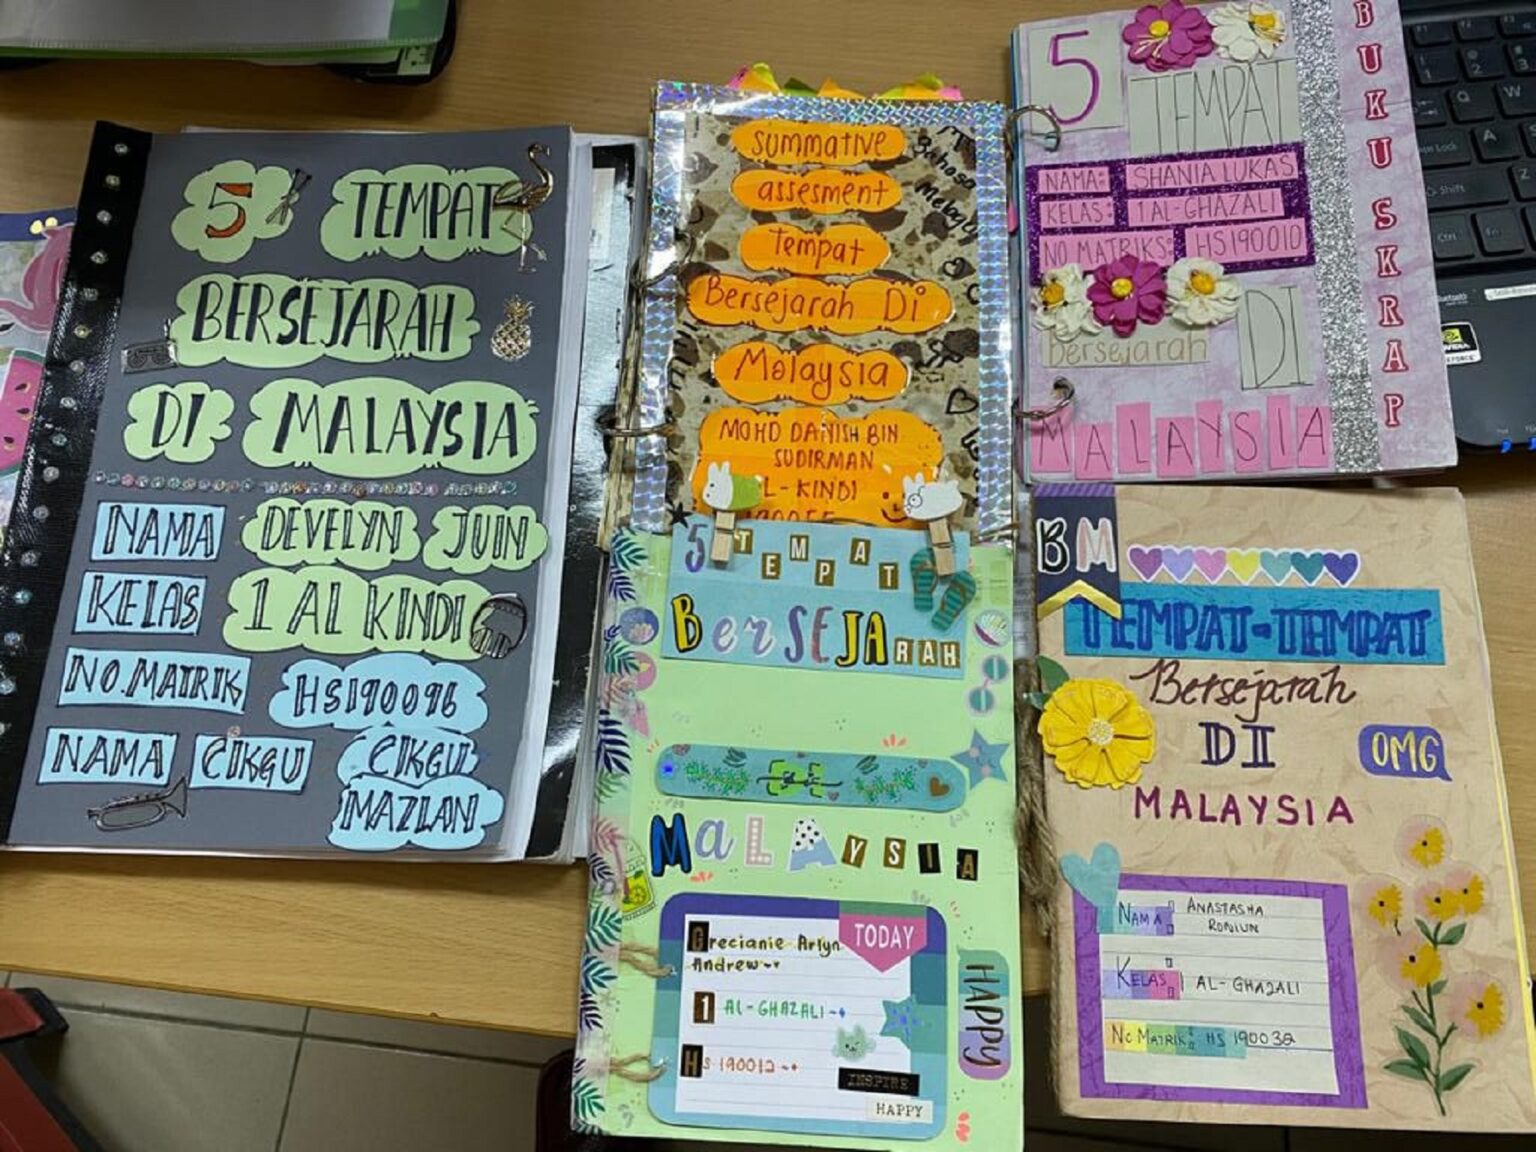 5 TEMPAT
BERSEJARAH
DI MALAYSIA
NAMA DEVELYN JUIN
KELAS 1 AL KINDI
NO. MATRIK HS190096
NAMA CIKGU CIKGU
MAZLAN
summative
assesment
Tempat
Bersejarah Di
Malaysia
MOHD DANISH BIN
SUDIRMAN
L-KINDI
Bahasa
Melayu
5 TEMPAT
BerSEJARAH
MaLAYSIA
TODAY
Grecianie Arlyn
Andrew
1 AL-GHAZALI
Hs 190012
HAPPY
INSPIRE
HAPPY
5 TEMPAT
NAMA: SHANIA LUKAS
KELAS: 1 AL-GHAZALI
NO MATRIKS: HS190010
Bersejarah DI
MALAYSIA
BUKU SKRAP
BM
TEMPAT-TEMPAT
Bersejarah
DI
MALAYSIA
OMG
NAMA: ANASTASHA
RONIUN
KELAS: 1 AL-GHAZALI
NO MATRIK: HS 190032